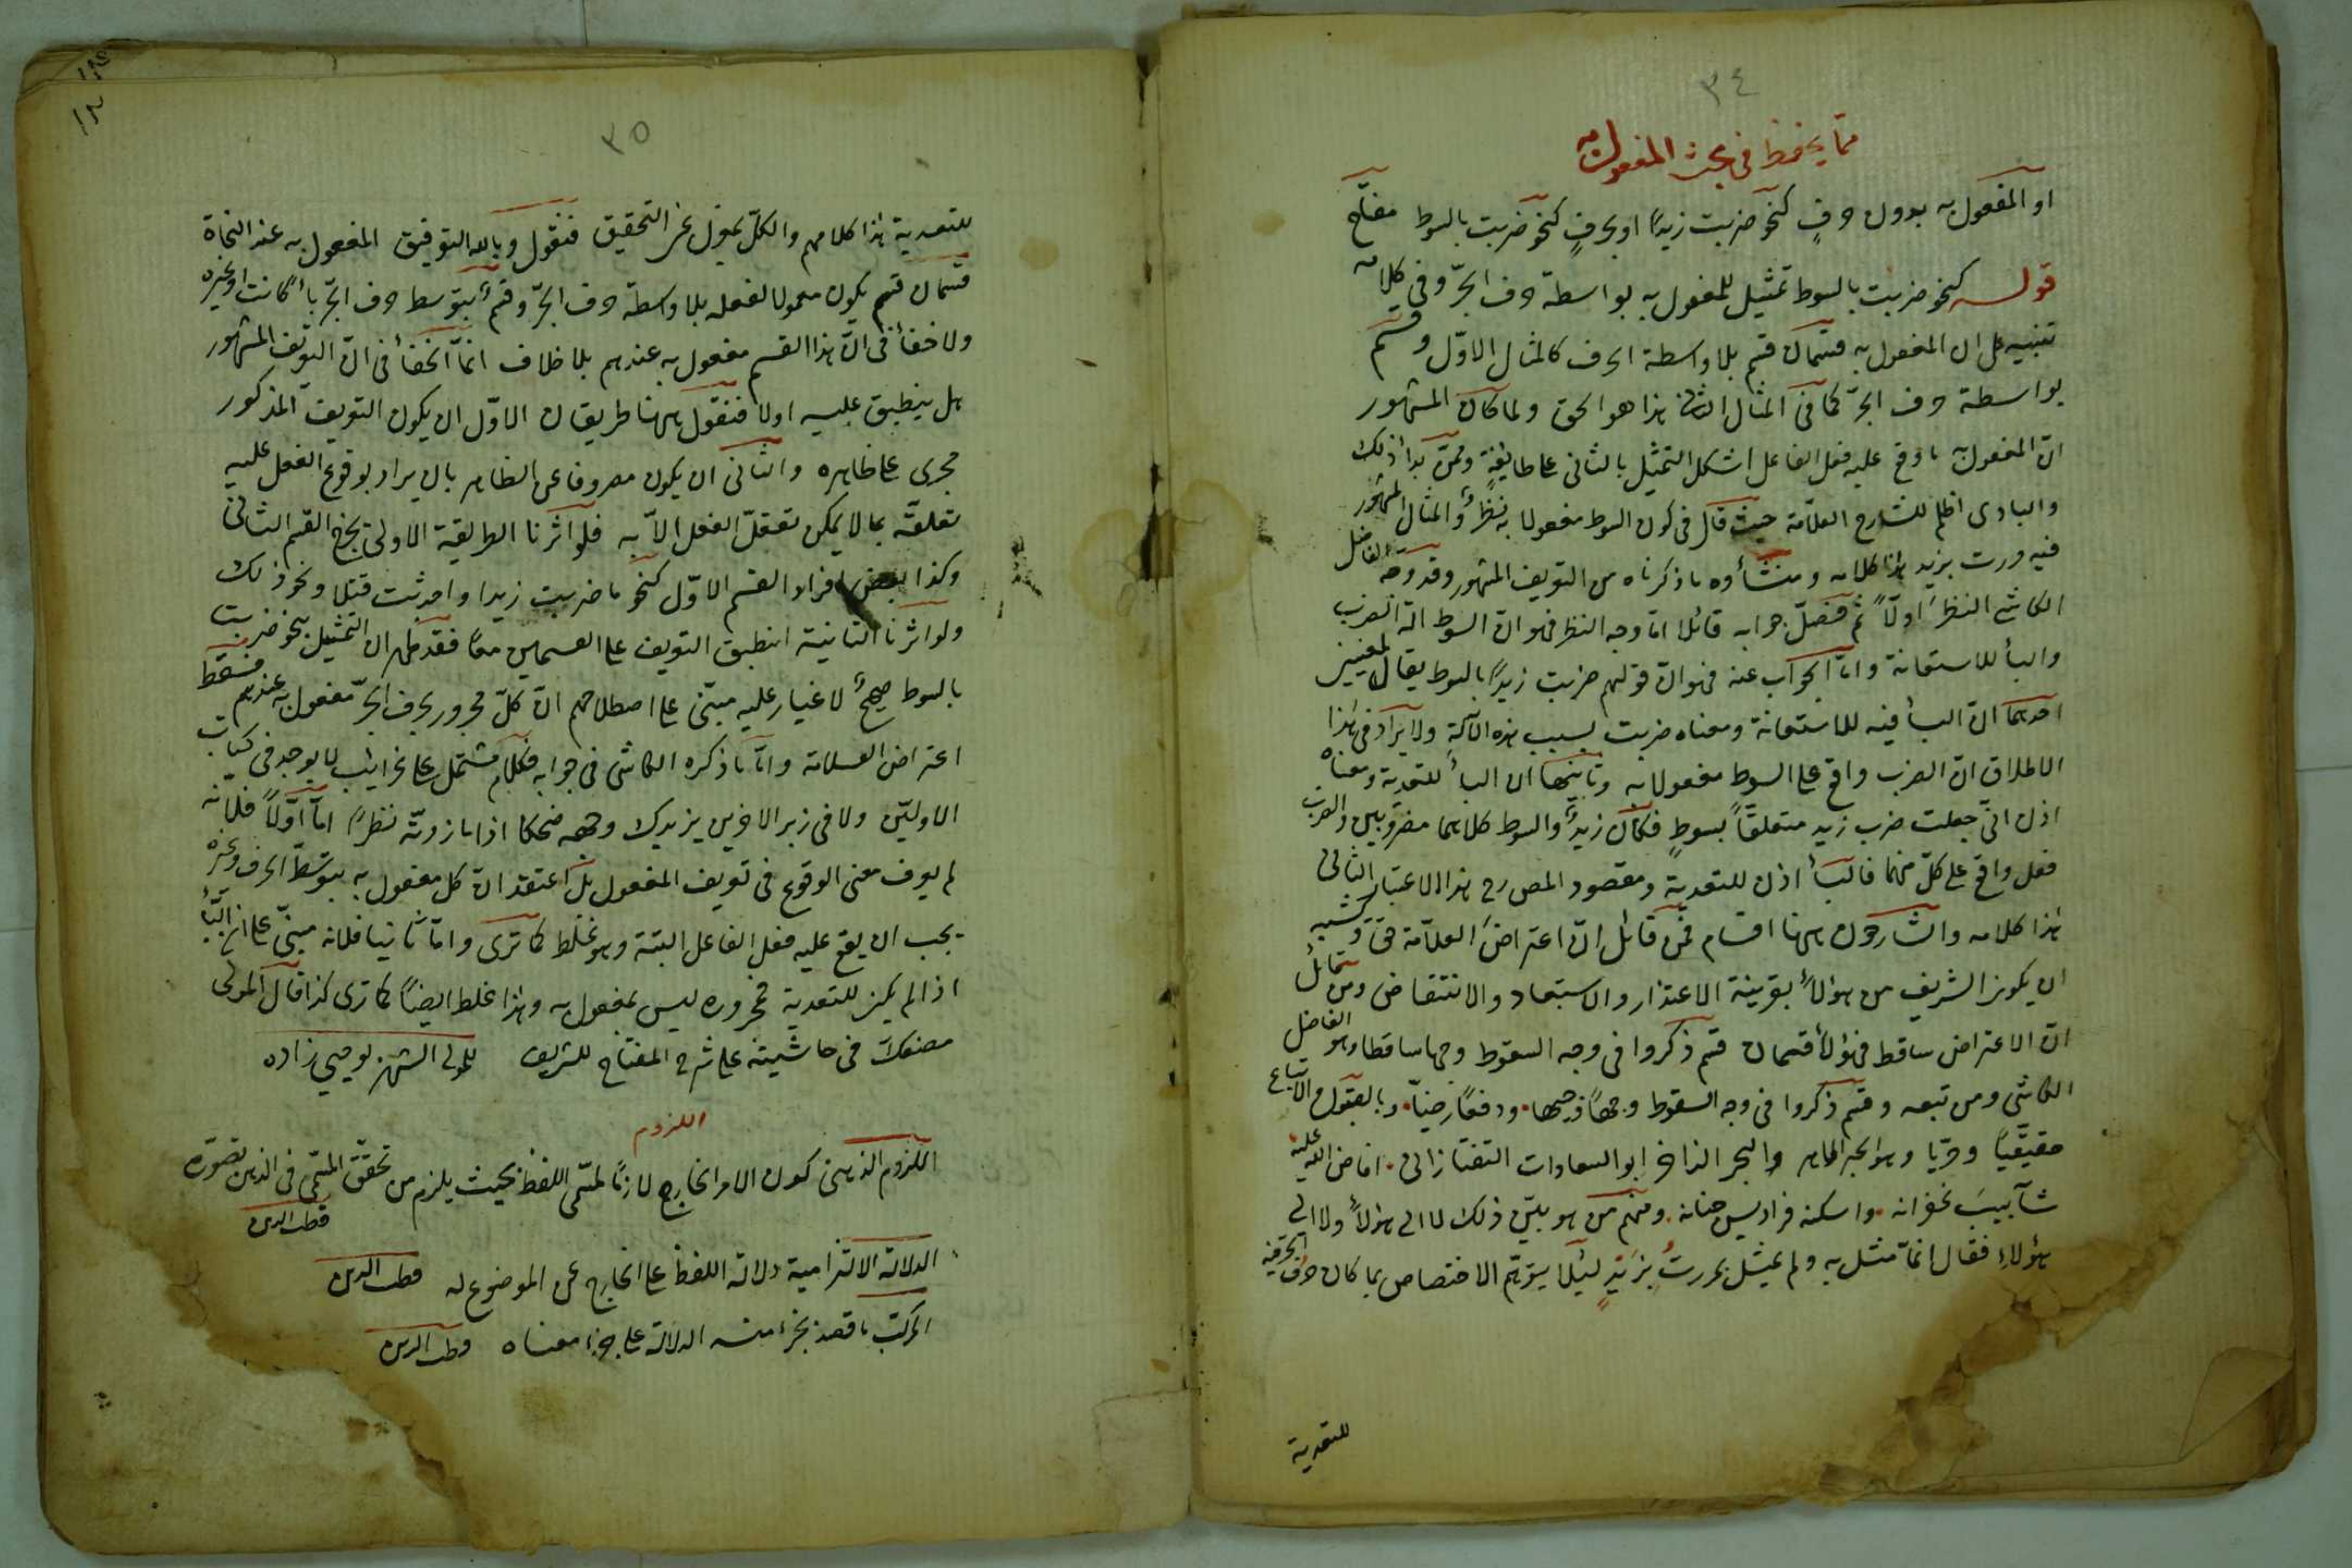 ٣٤
مما يحفظ في بحث المفعول به
او المفعول به بدون حرف كنحو ضربت زيدًا او بحرفٍ كنحو ضربت بالسوط مفتاح
قوله كنحو ضربت بالسوط تمثيل للمفعول به بواسطة حرف الجرّ وفي كلامه
تنبيه على ان المفعول به قسمان قسم بلا واسطة الحرف كالمثال الاوّل وقسم
بواسطة حرف الجرّ كما في المثال الثاني هذا هو الحق ولما كان المشهور
انّ المفعول به ما وقع عليه فعل الفاعل اشكل التمثيل بالثاني على طائفةٍ وممن بدا ذلك
والبادى اظلم للشارح العلاّمة حيث قال في كون السوط مفعولا به نظرٌ والمثال المشهور
فيه مررت بزيد هذا كلامه ومنشأوه ما ذكرناه من التعريف المشهور وقد وجه الفاضل
الكاشي النظرَ اوّلاً ثم فصّل جوابه قائلا اما وجه النظر فهو انّ السوط آلة الضرب
والبأ للاستعانة وامّا الجواب عنه فهو انّ قولهم ضربت زيدًا بالسوط يقال لمعنيين
احدهما انّ البأ فيه للاستعانة ومعناه ضربت بسبب هذه الآلة ولا يراد في هذا
الاطلاق انّ الضرب واقع على السوط مفعولا به وثانيهما ان البأ للتعدية ومعناه
اذن انّي جعلت ضرب زيد متعلقاً بسوطٍ فكان زيدٌ والسوط كلاهما مضروبين والضرب
فعل واقع على كلّ منهما فالبأ اذن للتعدية ومقصود المص رح هذا الاعتبار الثاني
هذا كلامه والشارحون ههنا اقسام فمن قائل انّ اعتراضَ العلاّمة حق ويشبه
ان يكون الشريف من هؤلاءِ بقرينة الاعتذار والاستبعاد والانتقاض ومن قائل
انّ الاعتراض ساقط فهؤلاء قسمان قسم ذكروا في وجه السقوط وجها ساقطا وهو الفاضل
الكاشي ومن تبعه وقسم ذكروا في وجه السقوط وجهاً وجيها ودفعاً رضيّا وبالقبول والاتباع
حقيقيًا وحريا وهو الحبر الماهر والبحر الزاخر ابو السعادات التفتازاني افاض الله عليه
شآبيبَ غفرانه واسكنه فراديس جنانه ومنهم من هو بين ذلك لا الى هؤلاءِ ولا الى
هؤلاءِ فقال انّما مثل به ولم يمثل بمررتُ بزيدٍ لئلا يتوهّم الاختصاص بما كان حرف الجرّ فيه
للتعدية
٣٥
للتعدية هذا كلامهم والكلّ بمعزل عن التحقيق فنقول وبالله التوفيق المفعول به عند النحاة
قسمان قسم يكون معمولا لفعله بلا واسطة حرف الجرّ وقسمٌ بتوسط حرف الجرّ باءً كانت او غيره
ولا خفأ في انّ هذا القسم مفعول به عندهم بلا خلاف انّما الخفأ في انّ التعريف المشهور
هل ينطبق عليه اولا فنقول ههنا طريقان الاوّل ان يكون التعريف المذكور
مجرى على ظاهره والثاني ان يكون مصروفا عن الظاهر بان يراد بوقوع الفعل عليه
تعلقه بما لا يمكن تعقل الفعل الاّ به فلو اثرنا الطريقة الاولى يخرج القسم الثاني
وكذا بعض افراد القسم الاوّل كنحو ما ضربت زيدا واحدثت قتلا ونحو ذلك
ولو اثرنا الثانية انطبق التعريف على القسمين معًا فقد ظهر ان التمثيل بنحو ضربت
بالسوط صحيحٌ لا غبار عليه مبنيّ على اصطلاحهم انّ كلّ مجرور بحرف الجرّ مفعول به عندهم فسقط
اعتراض العلامة وامّا ما ذكره الكاشي في جوابه فكلام مشتمل على غرائب لا يوجد في كتاب
الاوليّن ولا في زبر الاخرين يزيدك وجهه ضحكا اذا ما زدته نظرًا امّا اوّلاً فلانّه
لم يعرف معنى الوقوع في تعريف المفعول بل اعتقد انّ كل مفعول به بتوسّط الحرف وغيره
يجب ان يقع عليه فعل الفاعل البتة وهو غلط كما ترى وامّا ثانيا فلانه مبنيّ على انّ البأ
اذا لم يكن للتعدية فمجروره ليس بمفعول به وهذا غلط ايضًا كما ترى كذا قال المولى
مصنفك في حاشيته على شرح المفتاح للشريف للمولى الشهير بويسي زاده
اللزوم
اللزوم الذهني كون الامر الخارج لازمًا لمسمّى اللفظ بحيث يلزم من تحقق المسمّى في الذهن تصوّره
قطب الدين
الدلالة الالتزامية دلالة اللفظ على الخارج عن الموضوع له قطب الدين
المركب ما قصد بجزء منه الدلالة على جزء معناه قطب الدين